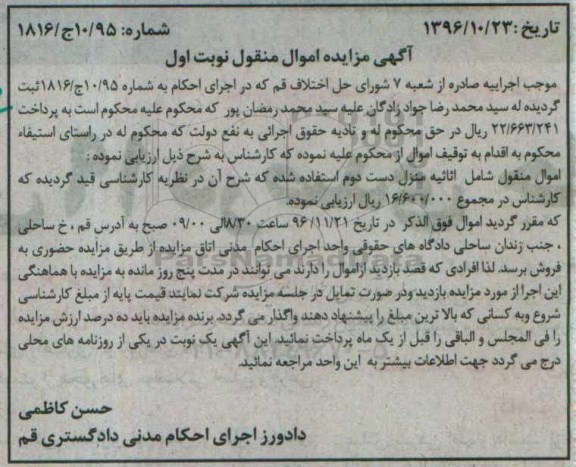 تاریخ: ۱۳۹۶/۱۰/۲۳
شماره: ۱۰/۹۵ج/۱۸۱۶
آگهی مزایده اموال منقول نوبت اول
موجب اجراییه صادره از شعبه ۷ شورای حل اختلاف قم که در اجرای احکام به شماره ۱۰/۹۵ج/۱۸۱۶ثبت
گردیده له سید محمد رضا جواد زادگان علیه سید محمد رمضان پور که محکوم علیه محکوم است به پرداخت
۲۲/۶۶۳/۲۴۱ ریال در حق محکوم له و تادیه حقوق اجرائی به نفع دولت که محکوم له در راستای استیفاء
محکوم به اقدام به توقیف اموال از محکوم علیه نموده که کارشناس به شرح ذیل ارزیابی نموده:
اموال منقول شامل اثاثیه منزل دست دوم استفاده شده که شرح آن در نظریه کارشناسی قید گردیده که
کارشناس در مجموع ۱۶/۶۰۰/۰۰۰ ریال ارزیابی نموده.
که مقرر گردید اموال فوق الذکر در تاریخ ۹۶/۱۱/۲۱ ساعت ۸/۳۰الی ۰۹/۰۰ صبح به آدرس قم ،خ ساحلی
، جنب زندان ساحلی دادگاه های حقوقی واحد اجرای احکام مدنی اتاق مزایده از طریق مزایده حضوری به
فروش برسد. لذا افرادی که قصد بازدید ازاموال را دارند می توانند در مدت پنج روز مانده به مزایده با هماهنگی
این اجرا از مورد مزایده بازدید ودر صورت تمایل در جلسه مزایده شرکت نمایند قیمت پایه از مبلغ کارشناسی
شروع وبه کسانی که بالا ترین مبلغ را پیشنهاد دهند واگذار می گردد. برنده مزایده باید ده درصد ارزش مزایده
را فی المجلس و الباقی را قبل از یک ماه پرداخت نمائید. این آگهی یک نوبت در یکی از روزنامه های محلی
درج می گردد جهت اطلاعات بیشتر به این واحد مراجعه نمائید.
حسن کاظمی
دادورز اجرای احکام مدنی دادگستری قم